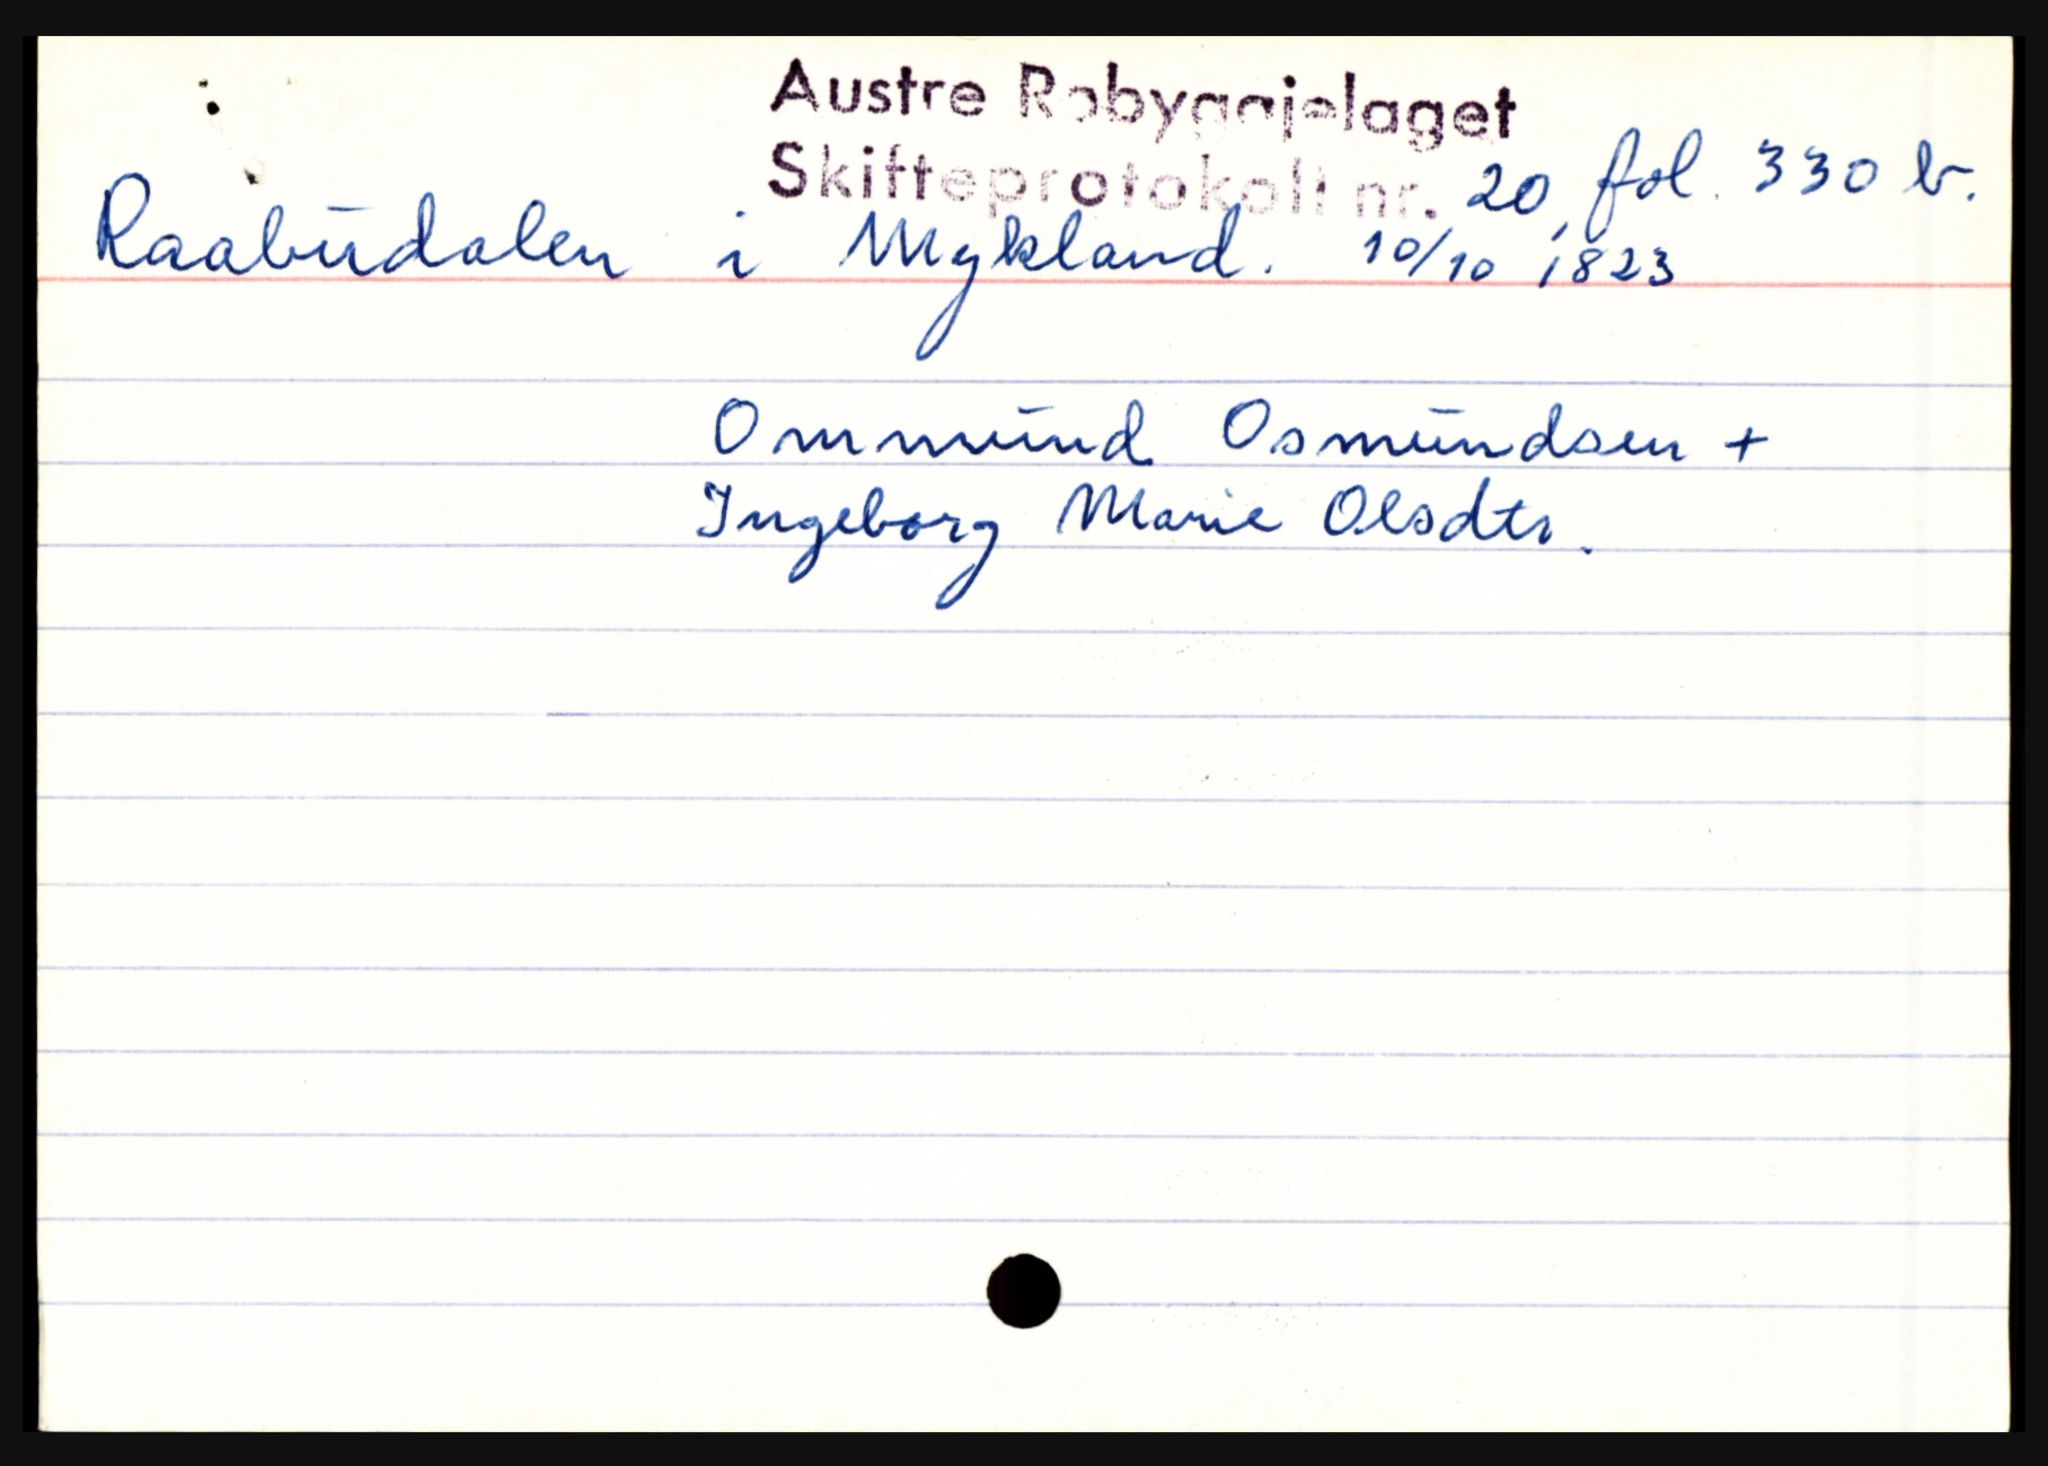 Austre Robyggjelaget
Skifteprotokoll nr. 20, fol. 330 b.
Raabudalen i Mykland. 10/10 1823
Ommund Osmundsen +
Ingeborg Marie Olsdtr.